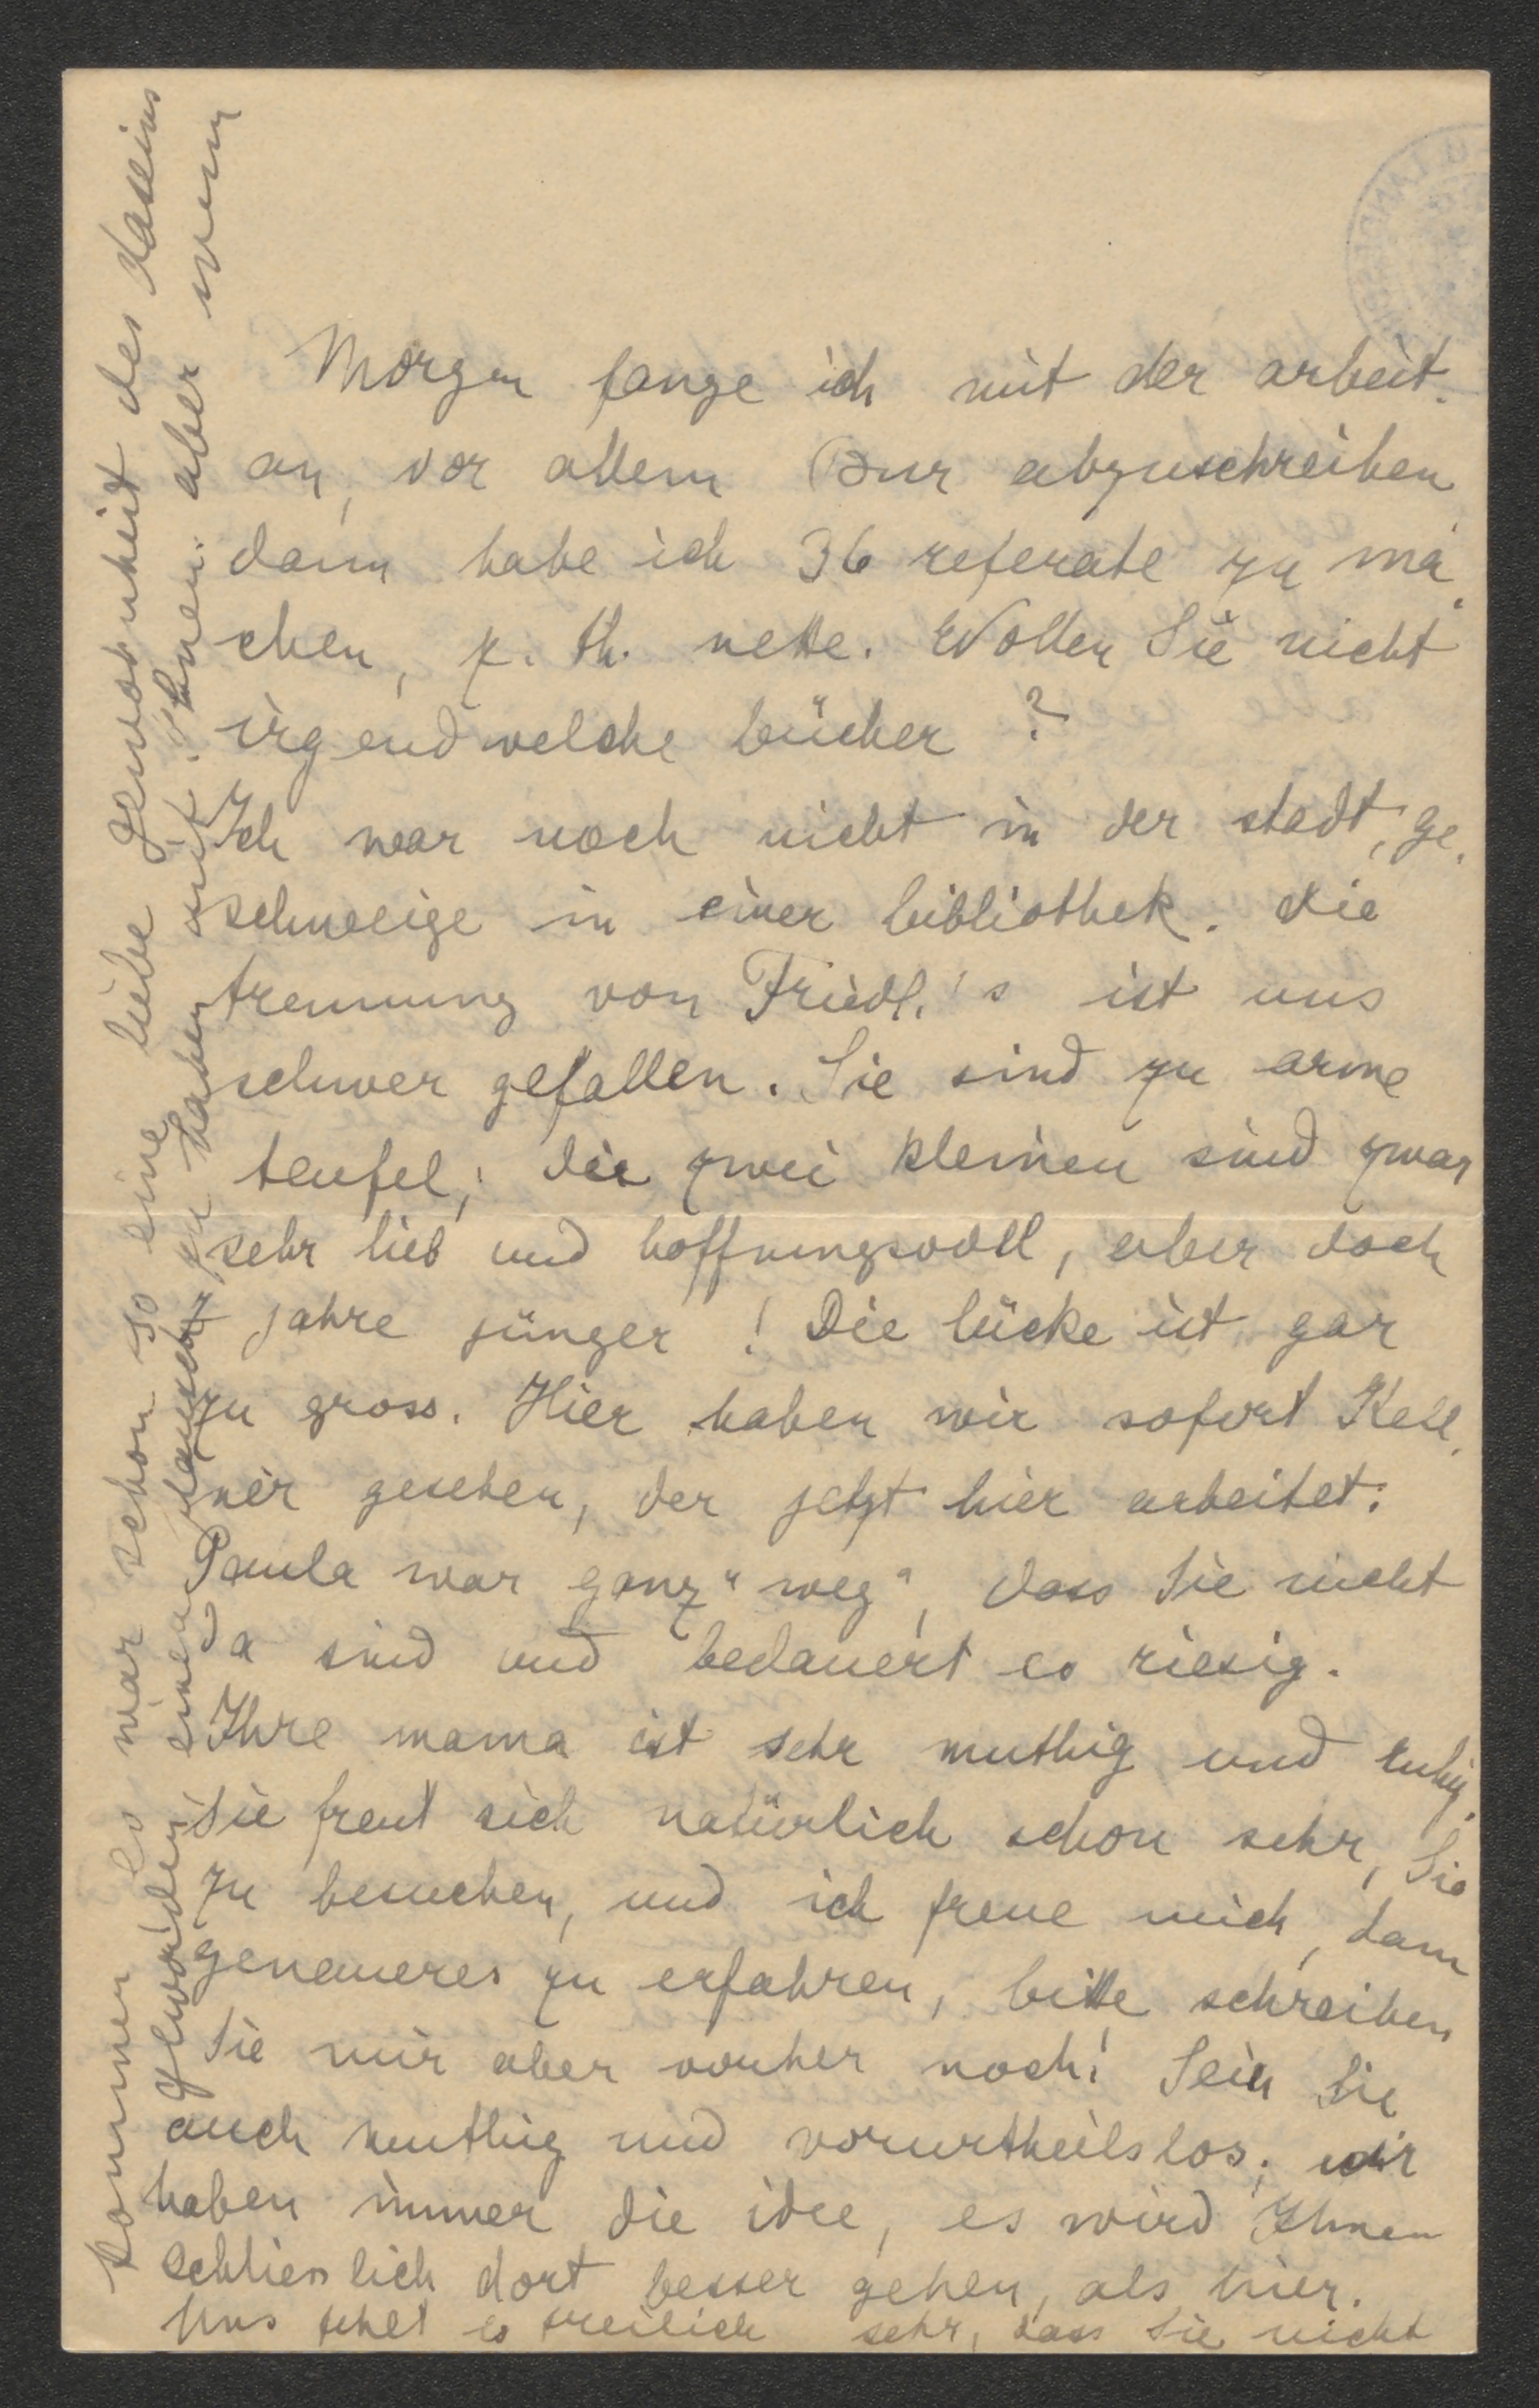 Morgen fange ich mit der arbeit
an, vor allem Bur abzuschreiben
dann habe ich 36 referate zu ma
chen, z. th. nette. Wollen Sie nicht
irgendwelche bücher ?
Ich war noch nicht in der stadt, ge
schweige in einer bibliothek. die
trennung von Friedl.'s ist uns
schwer gefallen. Sie sind zu arme
teufel; die zwei kleinen sind zwar
sehr lieb und hoffnungsvoll, aber doch
7 jahre jünger ! Die lücke ist gar
zu gross. Hier haben wir sofort Kell
ner gesehen, der jetzt hier arbeitet.
Paula war ganz "weg", dass Sie nicht
da sind und bedauert es riesig.
Ihre mama ist sehr muthig und ruhig.
Sie freut sich natürlich schon sehr, Sie
zu besuchen, und ich freue mich, dann
genaueres zu erfahren, bitte schreiben
Sie mir aber vorher noch! Sein Sie
auch muthig und vorurtheilslos; wir
haben immer die idee, es wird Ihnen
schliesslich dort besser gehen, als hier.
Uns fehlt es freilich sehr, dass Sie nicht
kommen es war schon so eine liebe gewohnheit des daseins
geworden, einen zu haben mit Ihnen. aber wenn